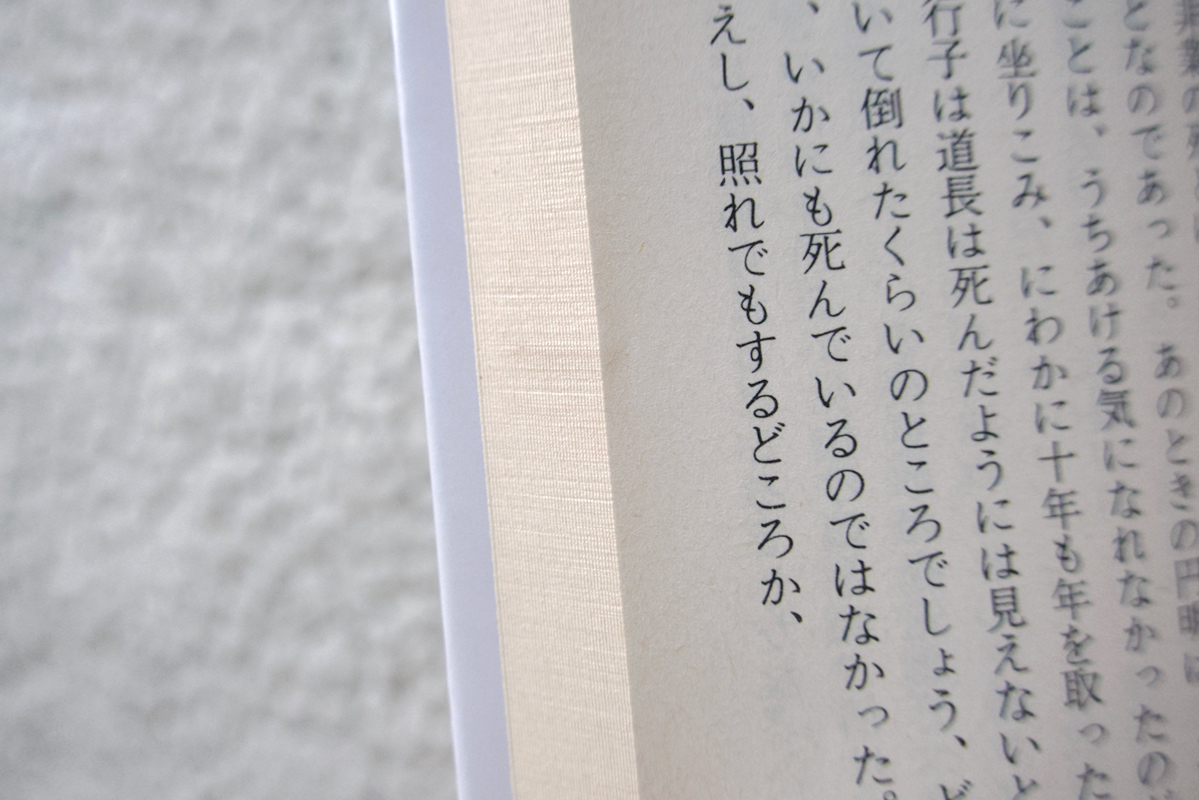 となのであった。あのときの円
ことは、うちあける気になれなかったの
に坐りこみ、にわかに十年も年を取った
行子は道長は死んだようには見えないと
いて倒れたくらいのところでしょう、ど
、いかにも死んでいるのではなかった。
えし、照れでもするどころか、